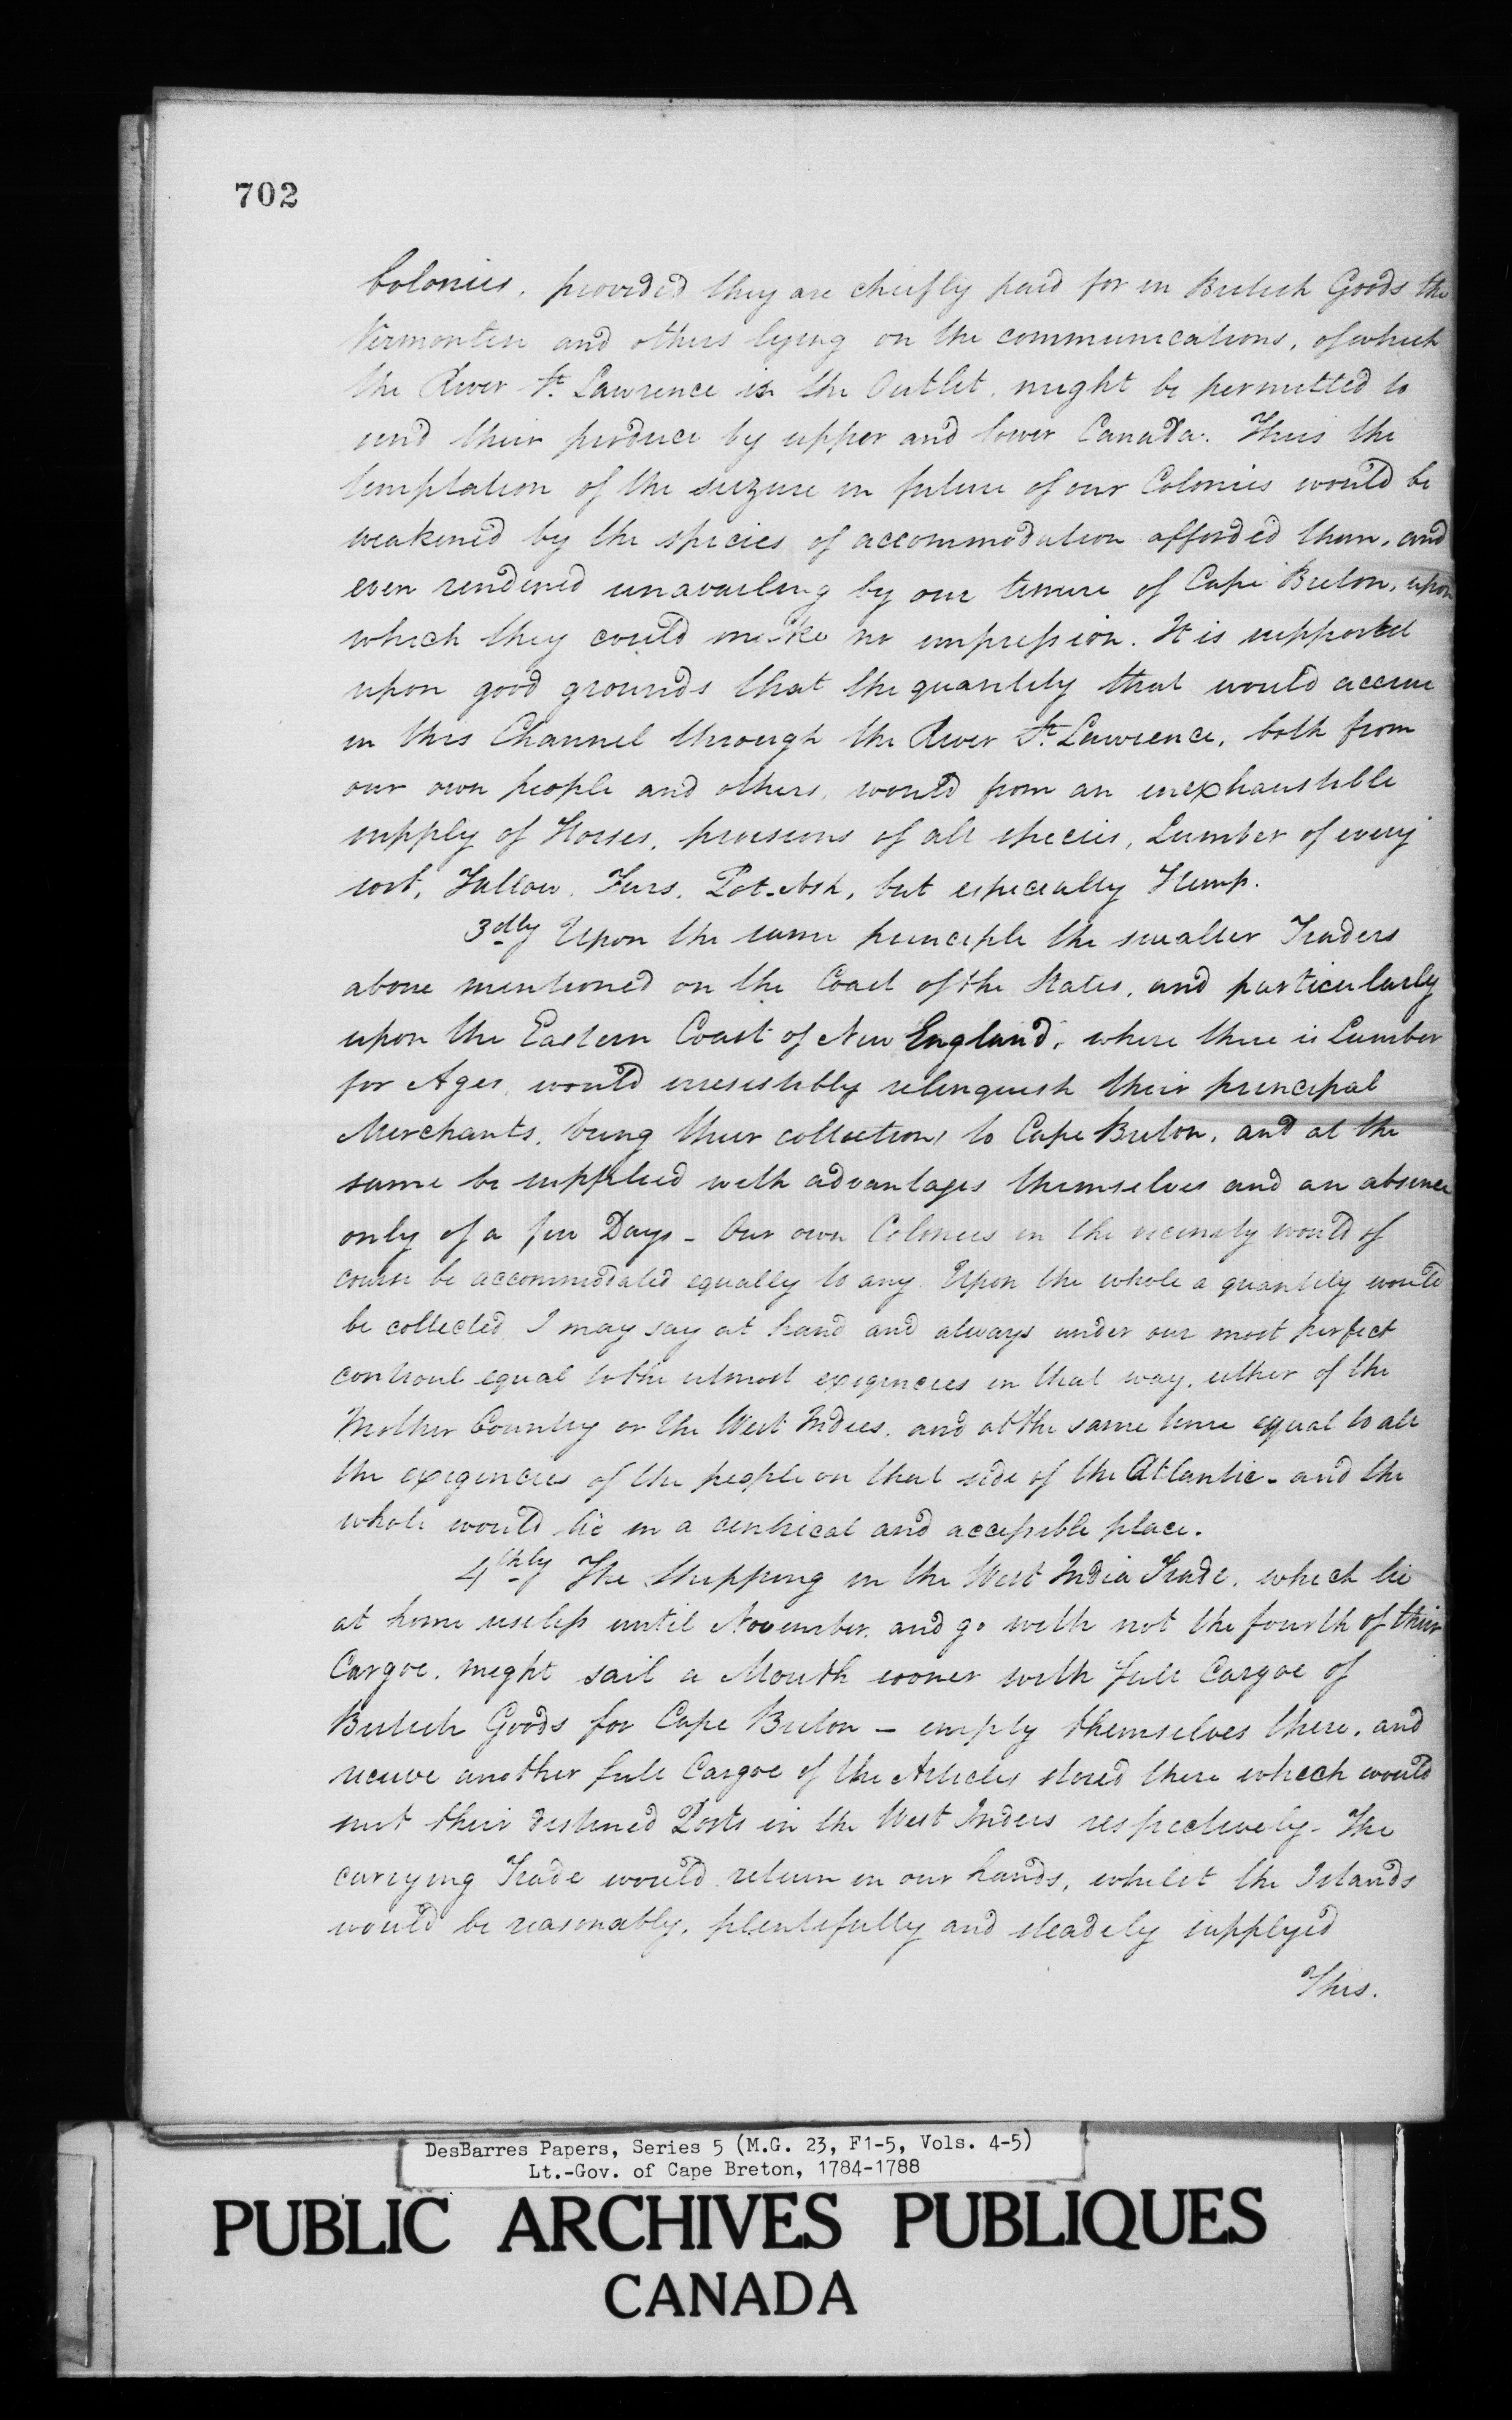 702
Colonies, provided they are chiefly paid for in British Goods the
Vermontese and others lying on the communications, of which
the River St. Lawrence is the Outlet, might be permitted to
send their produce by upper and lower Canada. Thus the
temptation of the seizure in future of our Colonies would be
weakened by the species of accommodation afforded them, and
even rendered unavailing by our tenure of Cape Breton, upon
which they could make no impression. It is supposed
upon good grounds that the quantity that would accrue
in this Channel through the River St. Lawrence, both from
our own people and others, would from an inexhaustible
supply of Horses, provisions of all species, Lumber of every
sort, Tallow, Furs, Pot-Ash, but especially Hemp.
3dly Upon the same principle the smaller Traders
above mentioned on the Coast of the States, and particularly
upon the Eastern Coast of New England, where there is Lumber
for Ages, would irresistibly relinquish their principal
Merchants, bring their collections to Cape Breton, and at the
same be supplied with advantages themselves and an absence
only of a few Days - Our own Colonies in the vicinity would of
course be accommodated equally to any. Upon the whole a quantity would
be collected, I may say at hand and always under our most perfect
controul equal to the utmost exigencies in that way, either of the
Mother Country or the West Indies, and at the same time equal to all
the exigencies of the people on that side of the Atlantic - and the
whole would lie in a centrical and accessible place.
4thly The Shipping in the West India Trade, which lie
at home useless until November, and go with not the fourth of their
Cargoe, might sail a Month sooner with full Cargoe of
British Goods for Cape Breton - empty themselves there, and
receive another full Cargoe of the Articles stored there which would
suit their destined Ports in the West Indies respectively - The
carrying Trade would return in our hands, whilst the Islands
would be reasonably, plentifully and steadily supplyed
This.
DesBarres Papers, Series 5 (M.G. 23, F1-5, Vols. 4-5)
Lt.-Gov. of Cape Breton, 1784-1788
PUBLIC ARCHIVES PUBLIQUES
CANADA